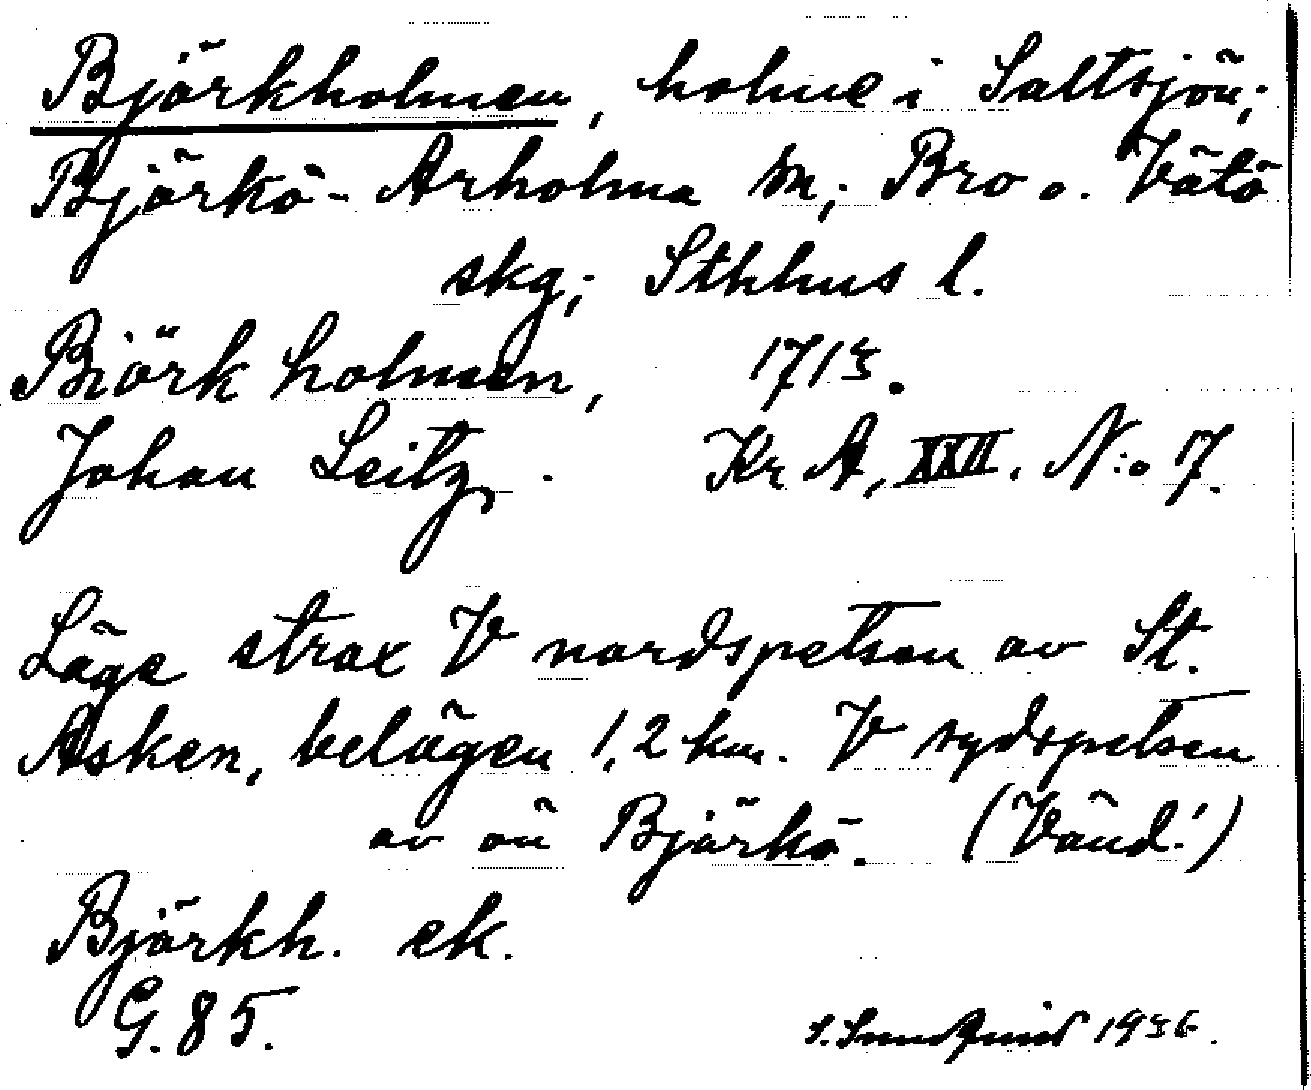 Björkholmen, holme i Saltsjön;
Björkö-Arholma sn; Bro o. Vätö
skg; Sthlms l.
Biörk holmen, 1713.
Johan Leitz. Kr A, XXII. N:o 7.
Läge strax V nordspetsen av St.
Asken, belägen 1,2 km. V sydspetsen
av ön Björkö. (Vänd!)
Björkh. ek.
G. 85.
1936.